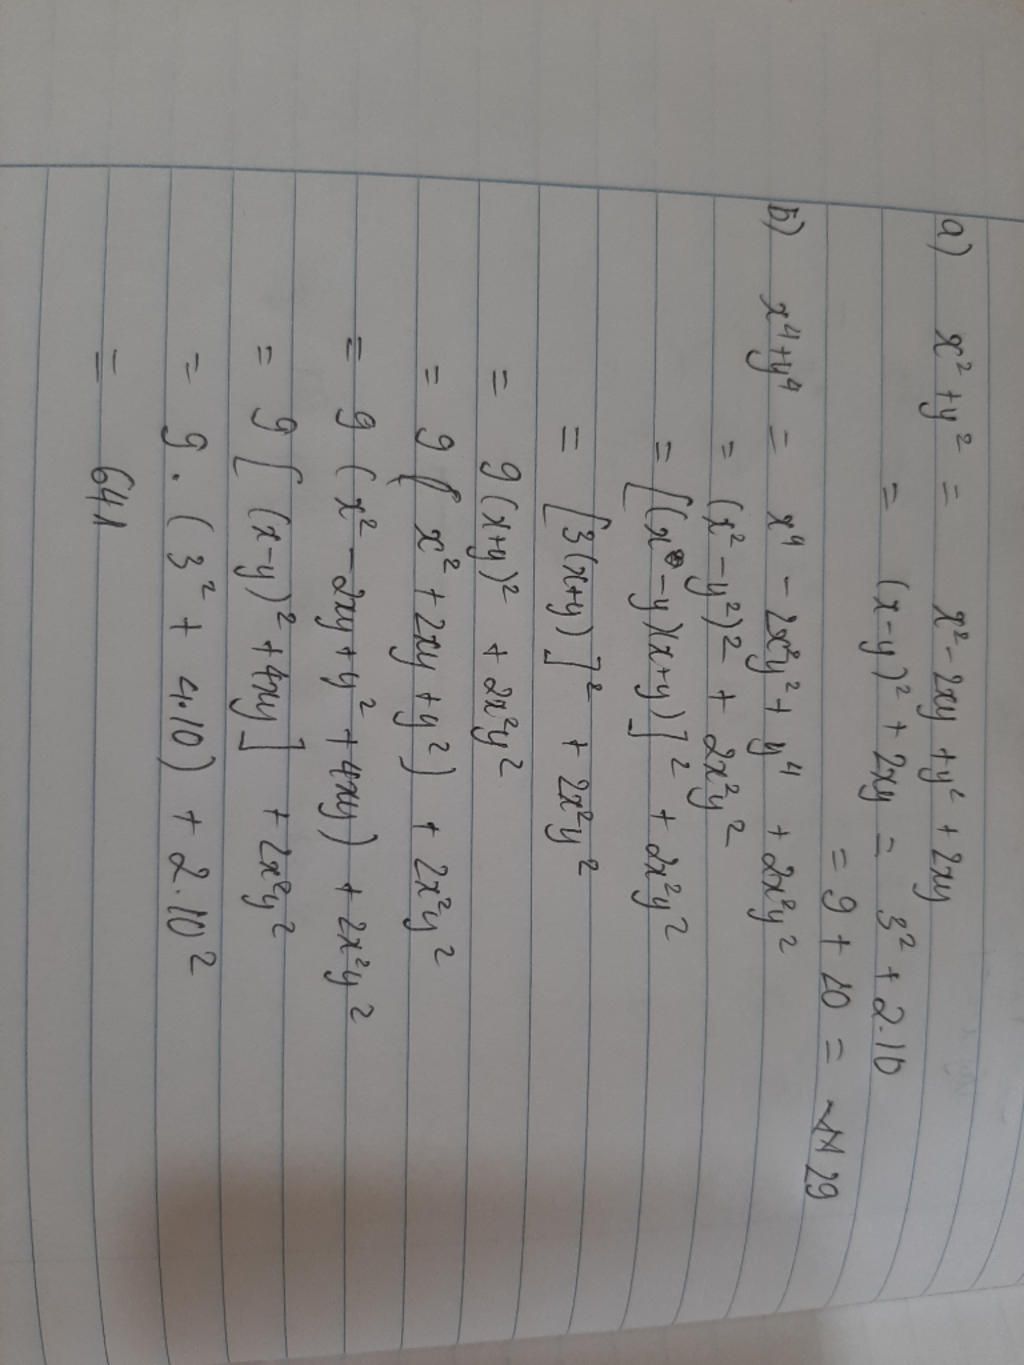 a) x² + y² = x² - 2xy + y² + 2xy
= (x-y)² + 2xy = 3² + 2.10
= 9 + 10 = 29
b) x⁴+y⁴ = x⁴ - 2x²y² + y⁴ + 2x²y²
= (x² - y²)² + 2x²y²
= [(x - y)(x+y)]² + 2x²y²
= [3(x+y)]² + 2x²y²
= 9(x+y)² + 2x²y²
= 9(x² + 2xy + y²) + 2x²y²
= 9(x² - 2xy + y² + 4xy) + 2x²y²
= 9[(x-y)² + 4xy] + 2x²y²
= 9.(3² + 4.10) + 2.10²
= 641